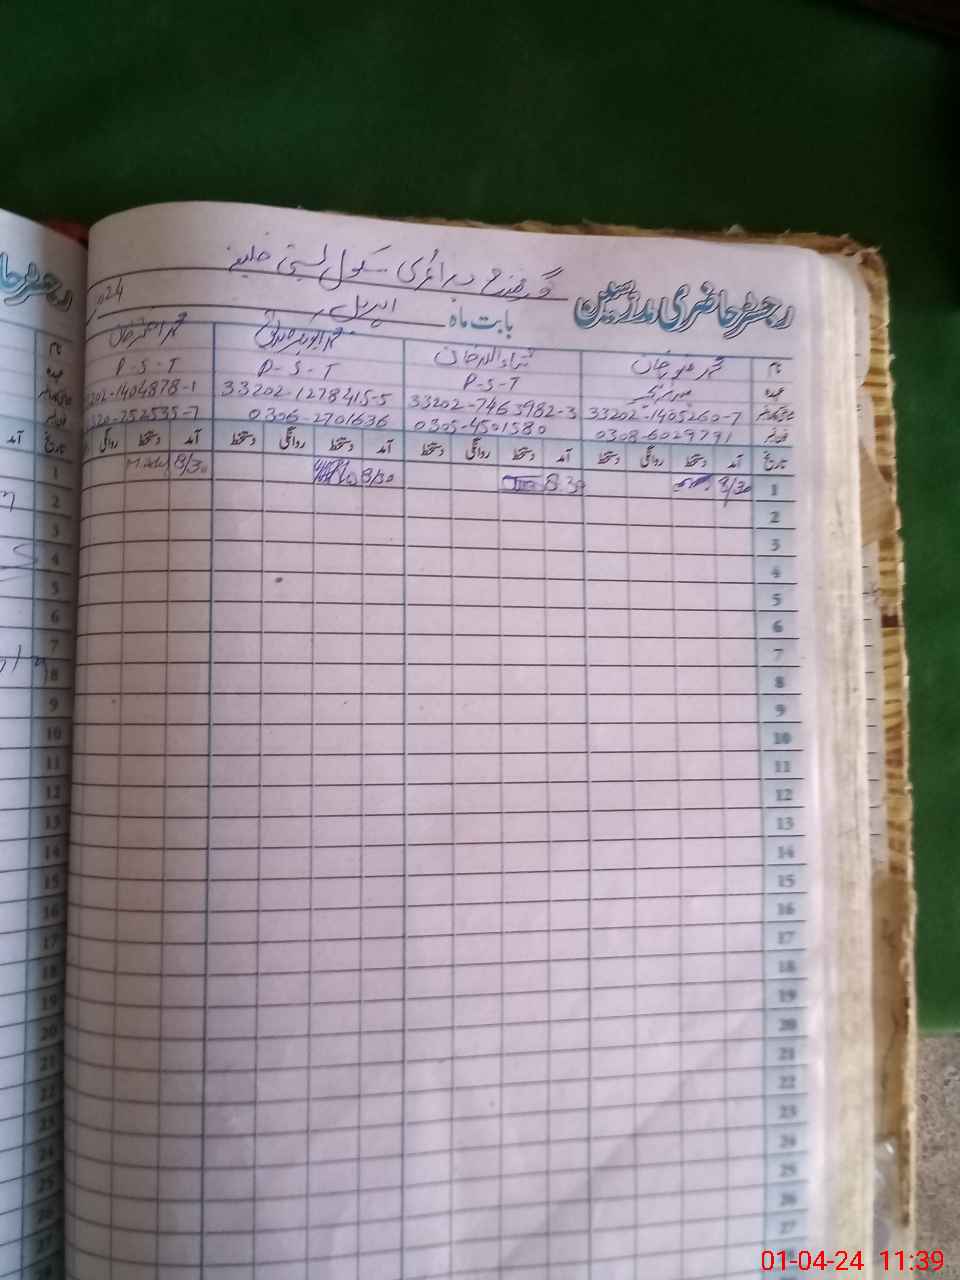 گورنمنٹ پرائمری سکول بستی
رجسٹر حاضری مدرسین
بابت ماہ اپریل 2024
نام محمد خان ثناء اللہ خان محمد محمد خان
عہدہ P-S-T P-S-T P-S-T
33202-1405260-7 33202-7463982-3 33202-1278415-5 202-1404878-1
0308-6029791 0305-4501580 0306-2701636 320-252535-7
تاریخ آمد دستخط روانگی دستخط آمد دستخط روانگی دستخط آمد دستخط روانگی دستخط آمد دستخط روانگی
1 8/30 8:30 8/30 8/30
2
3
4
5
6
7
8
9
10
11
12
13
14
15
16
17
18
19
20
21
22
23
24
25
26
27
01-04-24 11:39